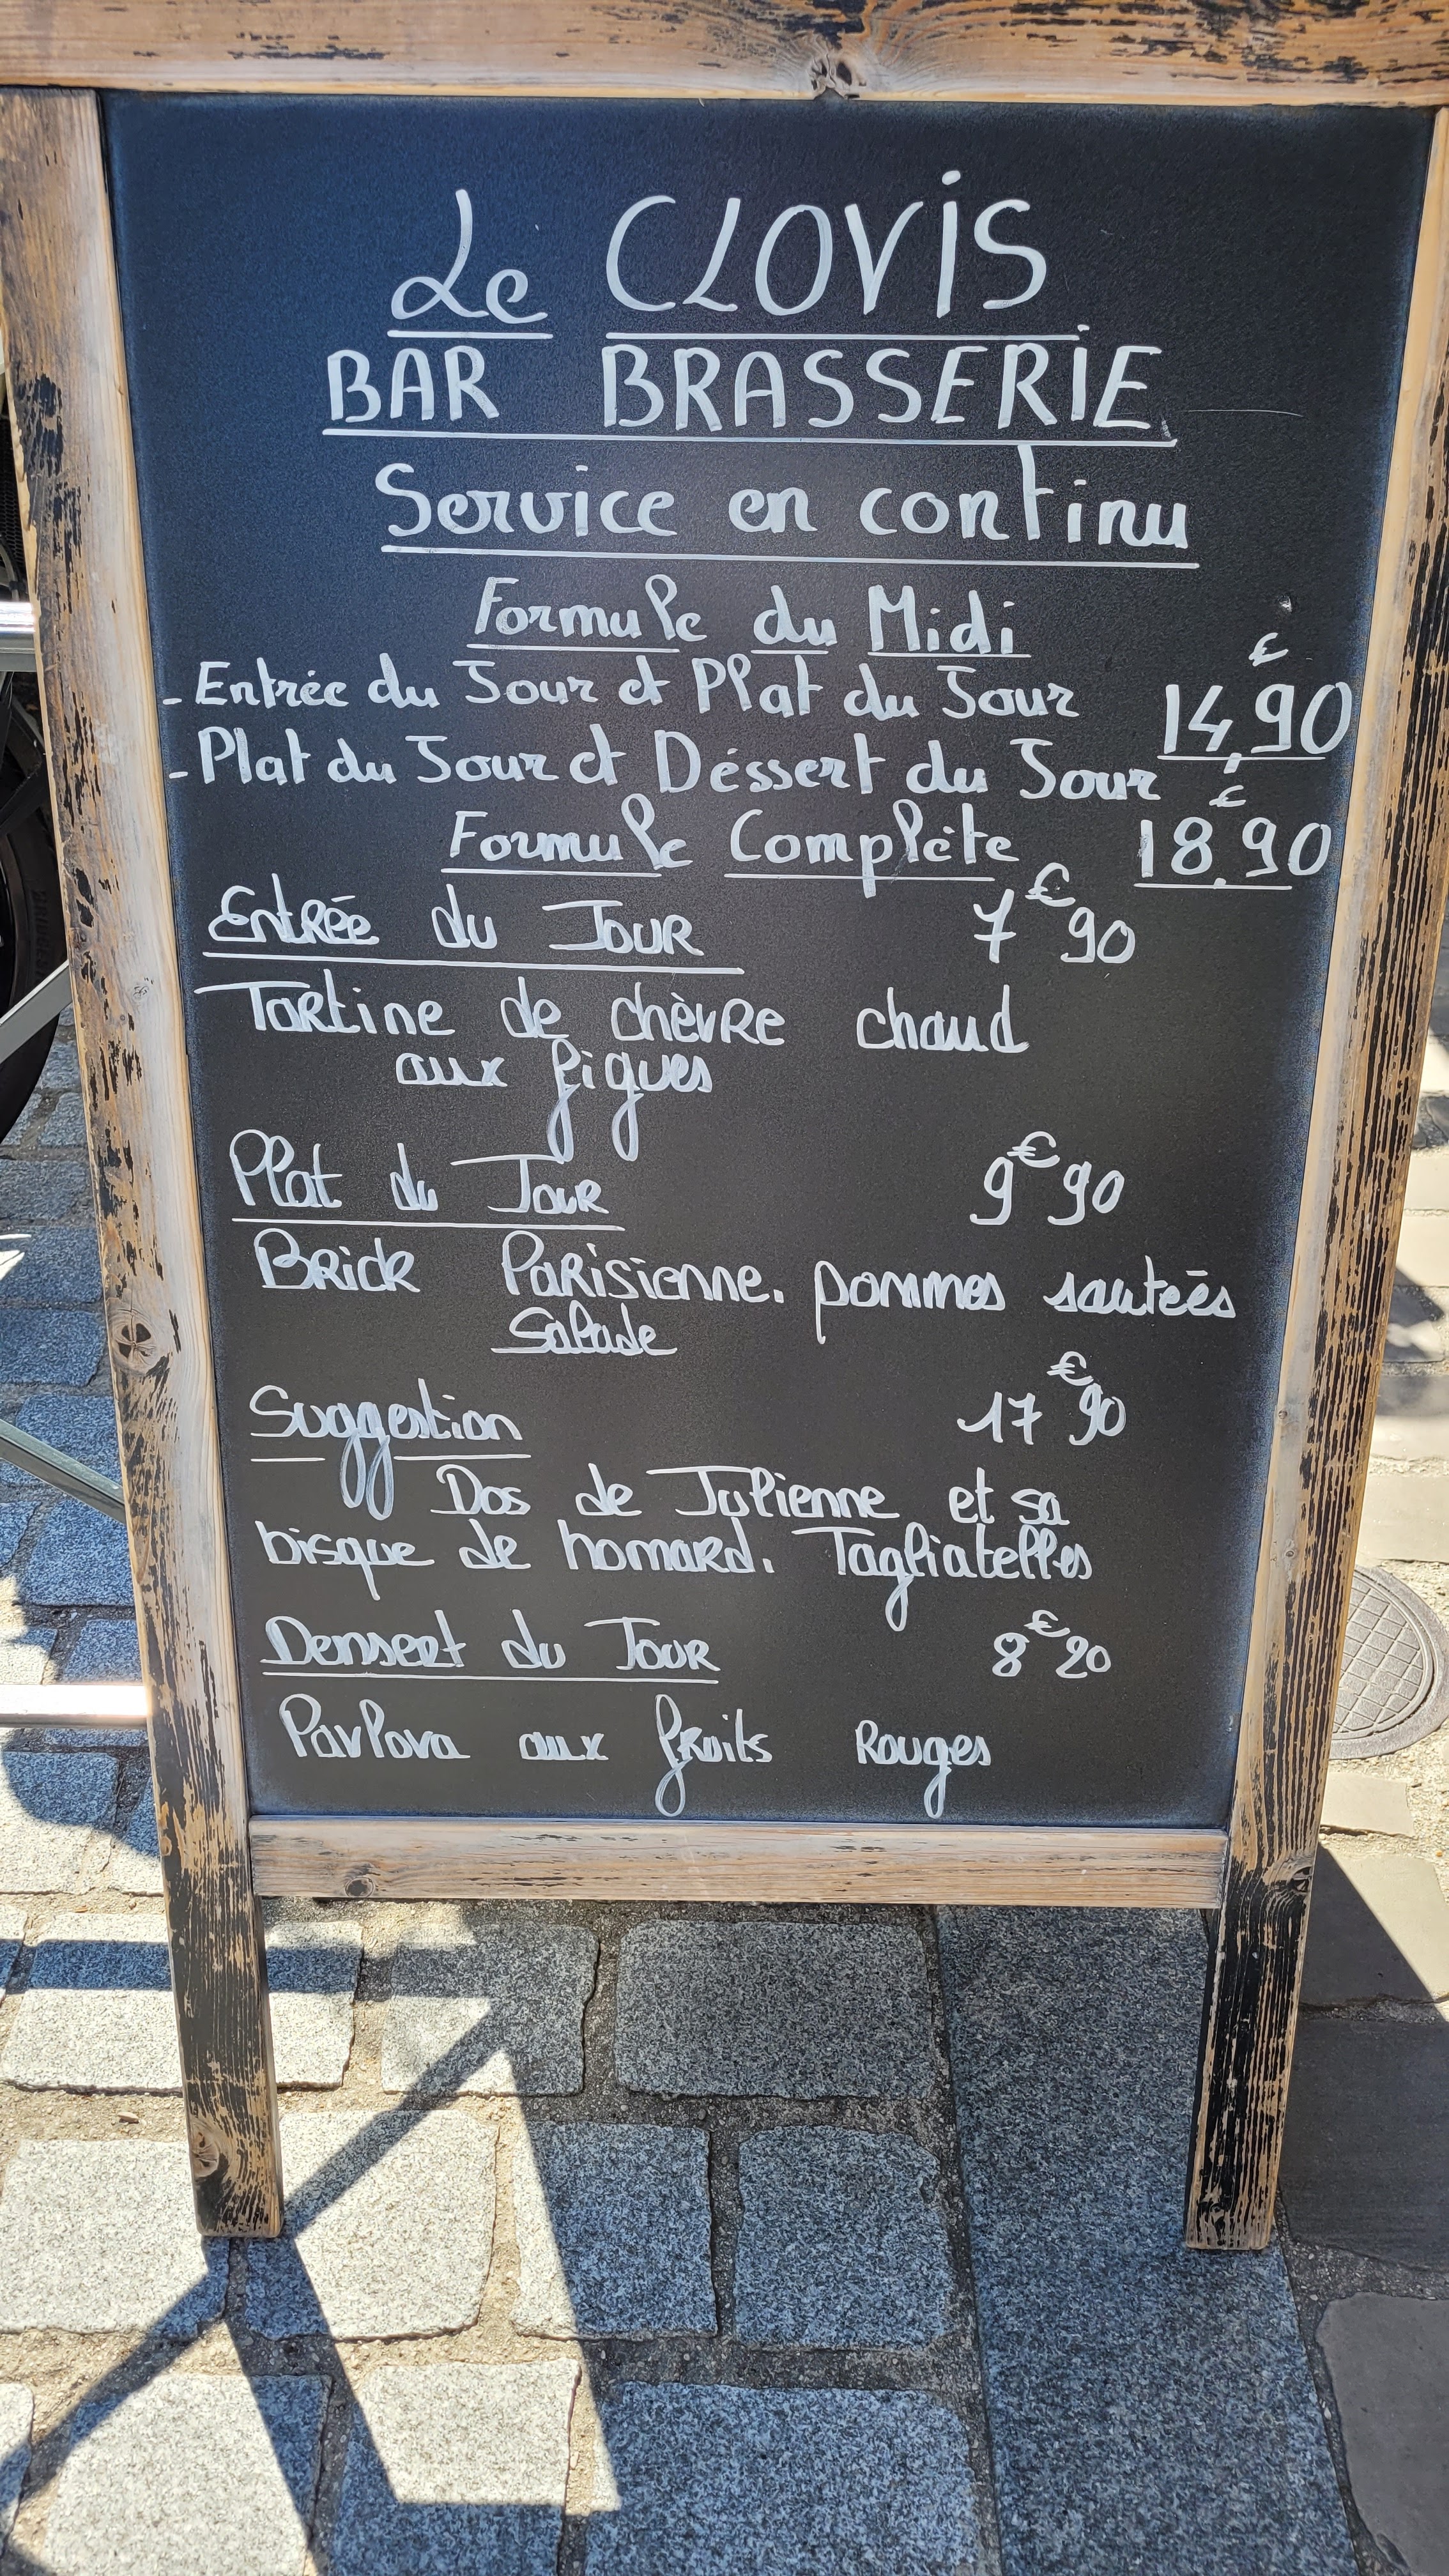 Le CLOVIS
BAR BRASSERIE
Service en continu
Formule du Midi
- Entrée du Jour et Plat du Jour 14,90 €
- Plat du Jour et Déssert du Jour
Formule Complète 18,90 €
Entrée du Jour 7€90
Tartine de chèvre chaud
aux figues
Plat du Jour 9€90
Brick Parisienne. pommes sauteés
Salade
Suggestion 17€90
Dos de Julienne et sa
bisque de homard. Tagliatelles
Dessert du Jour 8€20
Pavlova aux fruits Rouges